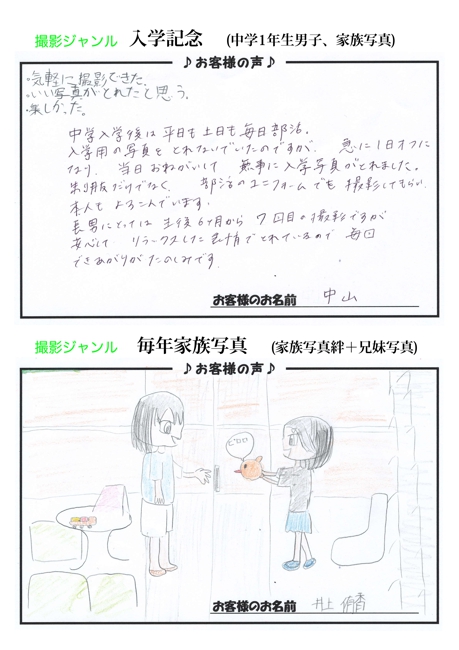 撮影ジャンル 入学記念 (中学1年生男子、家族写真)
♪お客様の声♪
・気軽に撮影できた。
・いい写真がとれたと思う。
・楽しかった。
中学入学後は平日も土日も毎日部活。
入学用の写真をとれないでいたのですが、急に1日オフに
なり、当日おねがいして 無事に入学写真がとれました。
制服だけでなく、部活のユニフォームでも撮影してもらい、
本人もよろこんでいます。
長男にとっては生後6ヶ月から 7回目の撮影ですが
安心して リラックスした表情でとれているので 毎回
できあがりがたのしみです。
お客様のお名前 中山
撮影ジャンル 毎年家族写真 (家族写真絆+兄妹写真)
♪お客様の声♪
お客様のお名前 井上